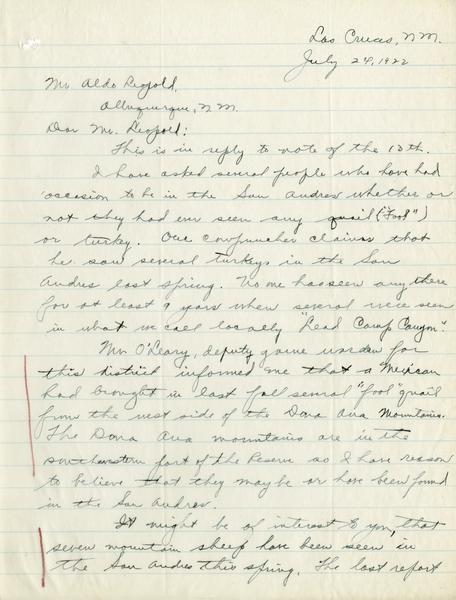 Las Cruces, N.M.
July 24, 1922
Mr. Aldo Leopold,
Albuquerque, N.M.
Dear Mr. Leopold:
This is in reply to note of the 13th.
I have asked several people who have had
occasion to be in the San Andres whether or
not they had ever seen any quail ("Fool")
or turkey. One cowpuncher claims that
he saw several turkeys in the San
Andres last spring. No one has seen any there
for at least 9 years when several were seen
in what we call locally "Lead Camp Canyon"
Mr. O'Leary, deputy game warden for
this district informed me that a Mexican
had brought in last fall several "fool" quail
from the west side of the Dona Ana Mountains.
The Dona Ana mountains are in the
southwestern part of the Reserve so I have reason
to believe that they may be or have been found
in the San Andres.
It might be of interest to you, that
seven mountain sheep have been seen in
the San Andres this spring. The last report